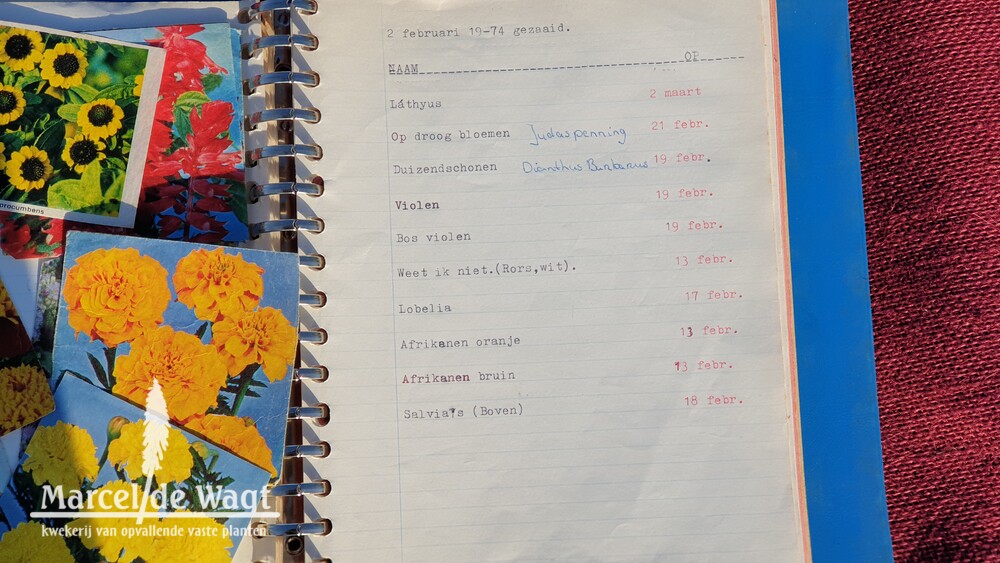 2 februari 19-74 gezaaid.
NAAM OP
Láthyus 2 maart
Op droog bloemen Judaspenning 21 febr.
Duizendschonen Dianthus Barbarus 19 febr.
Violen 19 febr.
Bos violen 19 febr.
Weet ik niet.(Rors,wit). 13 febr.
Lobelia 17 febr.
Afrikanen oranje 13 febr.
Afrikanen bruin 13 febr.
Salvia's (Boven) 18 febr.
procumbens
Marcel de Wagt
kwekerij van opvallende vaste planten